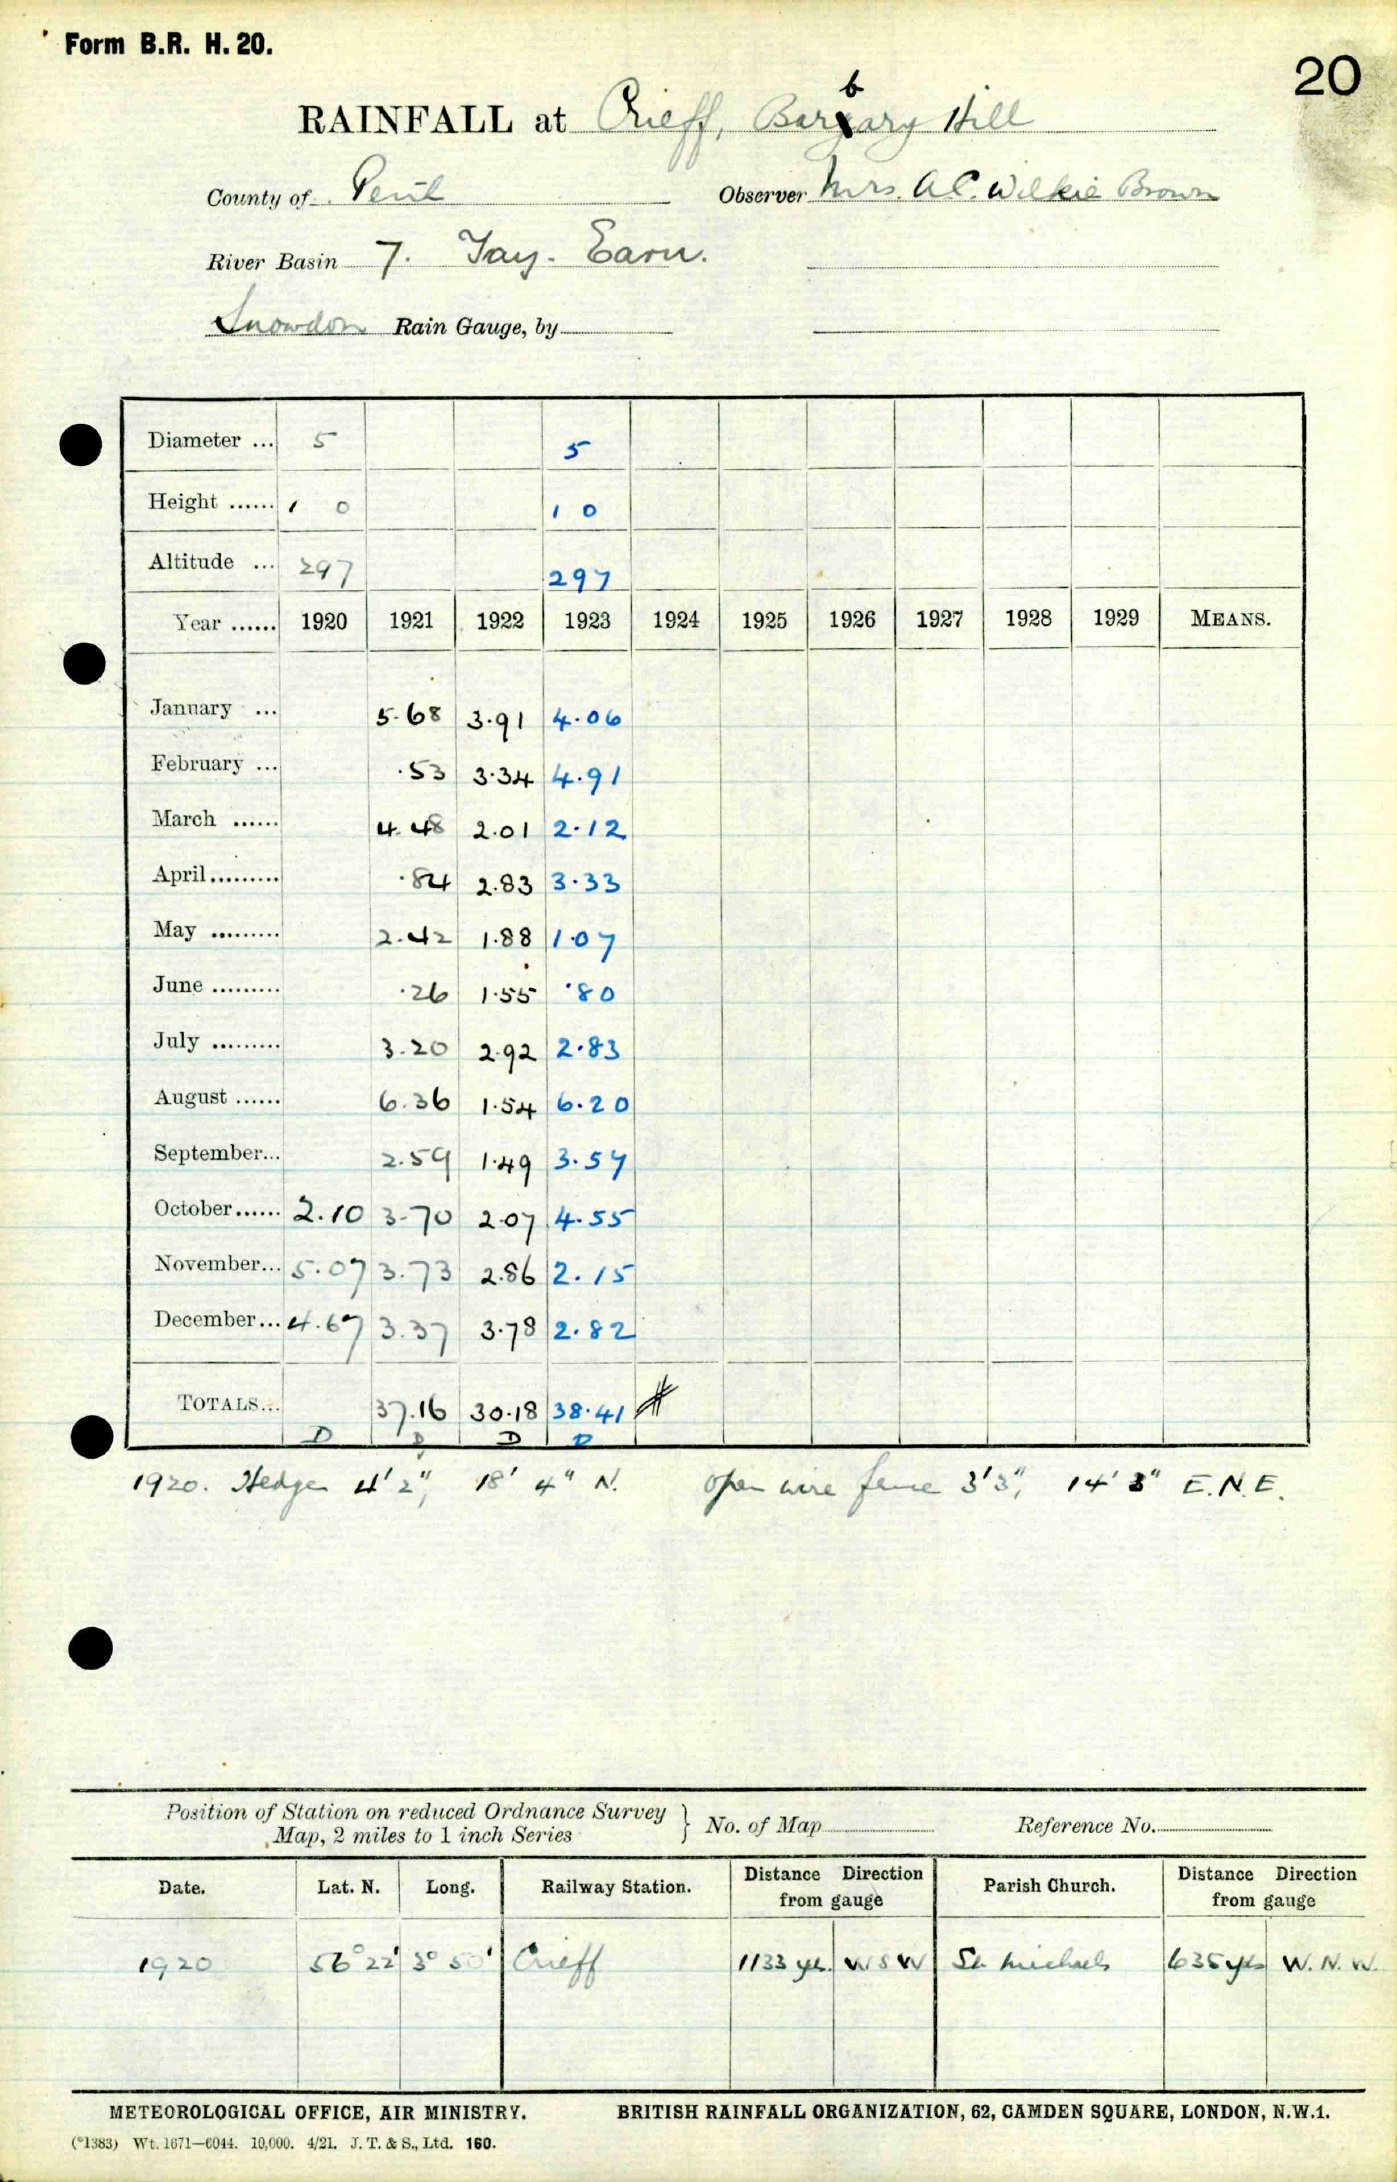 Form B.R. H. 20.
20
RAINFALL at Crieff, Barbary Hill
County of Perth Observer Mrs. A.C. Wilkie Brown
River Basin 7. Tay. Earn.
Snowdon Rain Gauge, by
Diameter ... 5 5
Height ...... 1 0 1 0
Altitude ... 297 297
Year ...... 1920 1921 1922 1923 1924 1925 1926 1927 1928 1929 MEANS.
January ... 5.68 3.91 4.06
February ... .53 3.34 4.91
March ...... 4.48 2.01 2.12
April ......... .84 2.83 3.33
May ......... 2.42 1.88 1.07
June ......... .26 1.55 .80
July ......... 3.20 2.92 2.83
August ...... 6.36 1.54 6.20
September... 2.59 1.49 3.57
October...... 2.10 3.70 2.07 4.55
November... 5.07 3.73 2.86 2.15
December... 4.67 3.37 3.78 2.82
TOTALS... 37.16 30.18 38.41
D D D D
1920. Hedge 4' 2", 18' 4" N. open wire fence 3' 3", 14' 3" E.N.E.
Position of Station on reduced Ordnance Survey
Map, 2 miles to 1 inch Series } No. of Map Reference No.
Date. Lat. N. Long. Railway Station. Distance Direction from gauge Parish Church. Distance Direction from gauge
1920 56° 22' 3° 50' Crieff 1133 yds. W S W St. Michaels 635 yds W. N. W.
METEOROLOGICAL OFFICE, AIR MINISTRY. BRITISH RAINFALL ORGANIZATION, 62, CAMDEN SQUARE, LONDON, N.W.1.
(*1383) Wt. 1671—6044. 10,000. 4/21. J. T. & S., Ltd. 160.